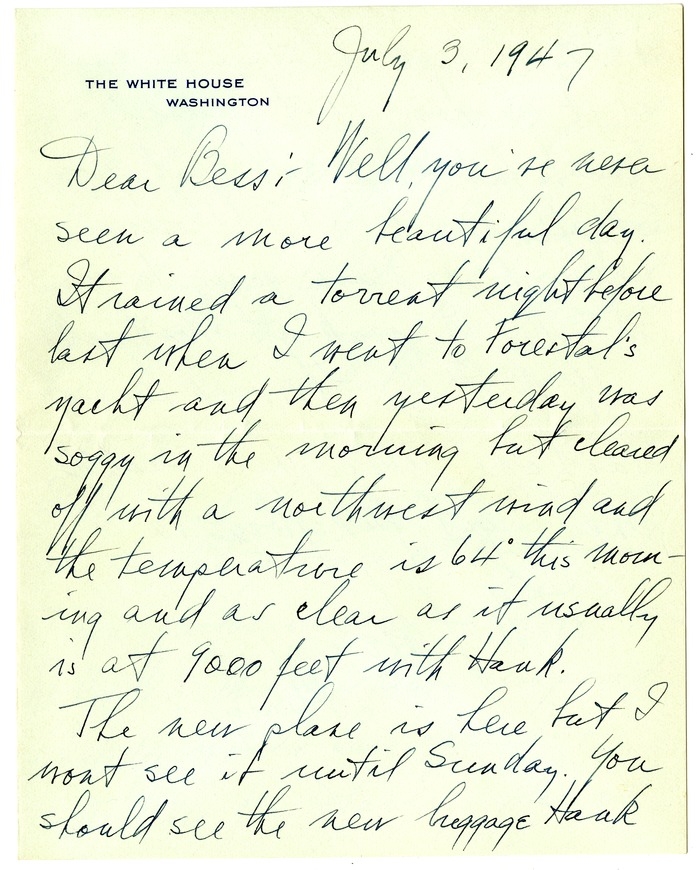 July 3, 1947
THE WHITE HOUSE
WASHINGTON
Dear Bess:- Well, you've never
seen a more beautiful day.
It rained a torrent night before
last when I went to Forestal's
yacht and then yesterday was
soggy in the morning but cleared
off with a northwest wind and
the temperature is 64° this morn-
ing and as clear as it usually
is at 9000 feet with Hank.
The new plane is here but I
wont see it until Sunday. You
should see the new luggage Hank